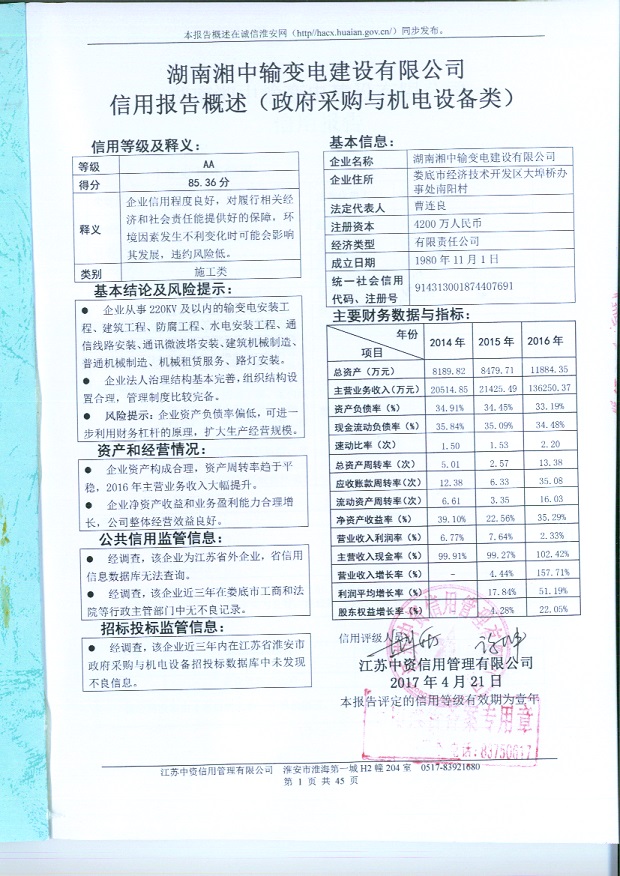 本报告概述在诚信淮安网（http//hacx.huaian.gov.cn/）同步发布。
湖南湘中输变电建设有限公司
信用报告概述（政府采购与机电设备类）
信用等级及释义：
等级 AA
得分 85.36分
释义 企业信用程度良好，对履行相关经
济和社会责任能提供好的保障，环
境因素发生不利变化时可能会影响
其发展，违约风险低。
类别 施工类
基本结论及风险提示：
● 企业从事220KV及以内的输变电安装工
程、建筑工程、防腐工程、水电安装工程、通
信线路安装、通讯微波塔安装、建筑机械制造、
普通机械制造、机械租赁服务、路灯安装。
● 企业法人治理结构基本完善，组织结构设
置合理，管理制度比较完备。
● 风险提示：企业资产负债率偏低，可进一
步利用财务杠杆的原理，扩大生产经营规模。
资产和经营情况：
● 企业资产构成合理，资产周转率趋于平
稳，2016年主营业务收入大幅提升。
● 企业净资产收益和业务盈利能力合理增
长，公司整体经营效益良好。
公共信用监管信息：
● 经调查，该企业为江苏省外企业，省信用
信息数据库无法查询。
● 经调查，该企业近三年在娄底市工商和法
院等行政主管部门中无不良记录。
招标投标监管信息：
● 经调查，该企业近三年内在江苏省淮安市
政府采购与机电设备招投标数据库中未发现
不良信息。
基本信息：
企业名称 湖南湘中输变电建设有限公司
企业住所 娄底市经济技术开发区大埠桥办
事处南阳村
法定代表人 曹连良
注册资本 4200万人民币
经济类型 有限责任公司
成立日期 1980年11月1日
统一社会信用
代码、注册号 914313001874407691
主要财务数据与指标：
年份
项目 2014年 2015年 2016年
总资产（万元） 8189.82 8479.71 11884.35
主营业务收入（万元） 20514.85 21425.49 136250.37
资产负债率（%） 34.91% 34.45% 33.19%
现金流动负债率（%） 35.84% 35.09% 34.48%
速动比率（%） 1.50 1.53 2.20
总资产周转率（次） 5.01 2.57 13.38
应收账款周转率（次） 12.38 6.33 35.08
流动资产周转率（次） 6.61 3.35 16.03
净资产收益率（%） 39.10% 22.56% 35.29%
营业收入利润率（%） 6.77% 7.64% 2.33%
主营收入现金率（%） 99.91% 99.27% 102.42%
营业收入增长率（%） - 4.44% 157.71%
利润平均增长率（%） 17.84% 51.19%
股东权益增长率（%） 4.28% 22.05%
信用评级人员：
江苏中资信用管理有限公司
2017年4月21日
本报告评定的信用等级有效期为壹年
专用章
江苏中资信用管理有限公司 淮安市淮海第一城H2幢204室 0517-83921680
第 1 页 共 45 页